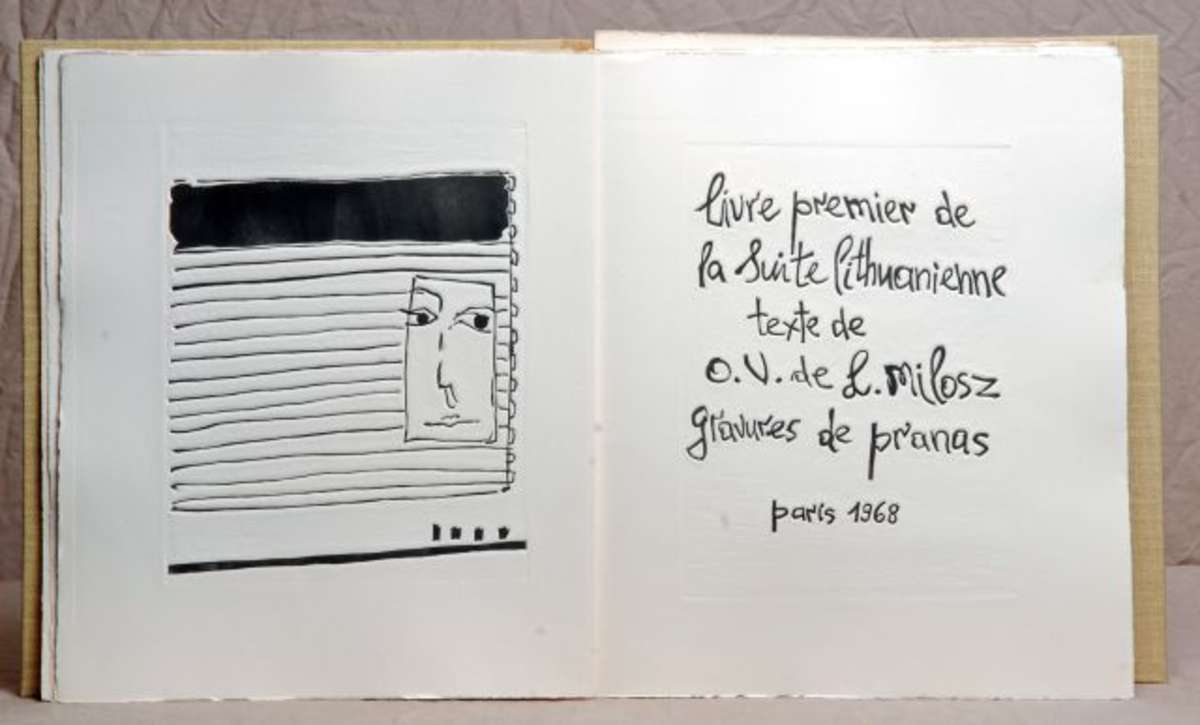 livre premier de
la Suite lithuanienne
texte de
O.V. de L. Milosz
gravures de pranas
paris 1968